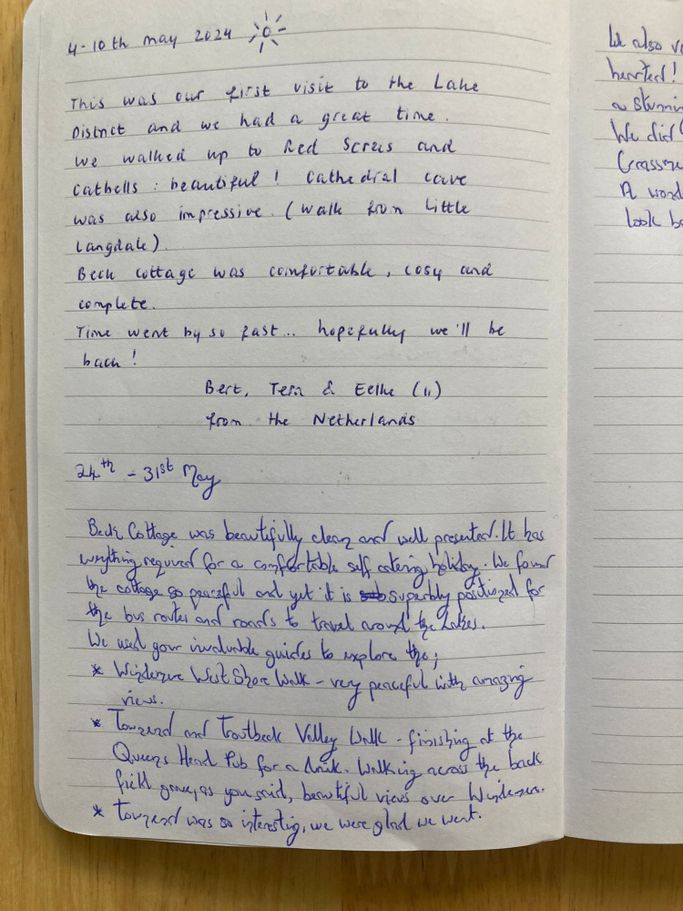 4-10th may 2024
This was our first visit to the Lake
District and we had a great time.
We walked up to Red Screes and
Catbells : beautiful! Cathedral cave
was also impressive. (walk from Little
Langdale).
Beck cottage was comfortable, cosy and
complete.
Time went by so fast... hopefully we'll be
back!
Bert, & Eelke (11)
from the Netherlands
24th - 31st May
Beck Cottage was beautifully clean and well presented. It has
everything required for a comfortable self catering holiday. We found
the cottage so peaceful and yet it is superbly positioned for
the bus routes and roads to travel around the Lakes.
We used your invaluable guides to explore the;
* Windermere West Shore Walk - very peaceful with amazing
views.
* Townend and Troutbeck Valley Walk - finishing at the
Queens Head Pub for a drink. Walking across the back
field gave, as you said, beautiful views over Windermere.
* Townend was so interesting, we were glad we went.
We also
hearted!
a
We did
A
look